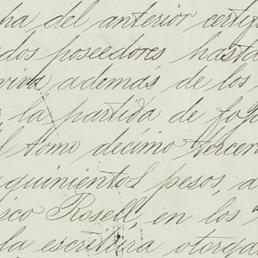 ha del anterior certifi
dos poseedores hasta
viva, además de los
la partida de foj
l tomo décimo tercer
quinientos pesos, a
sco Rosell, en los
la escritura otorga